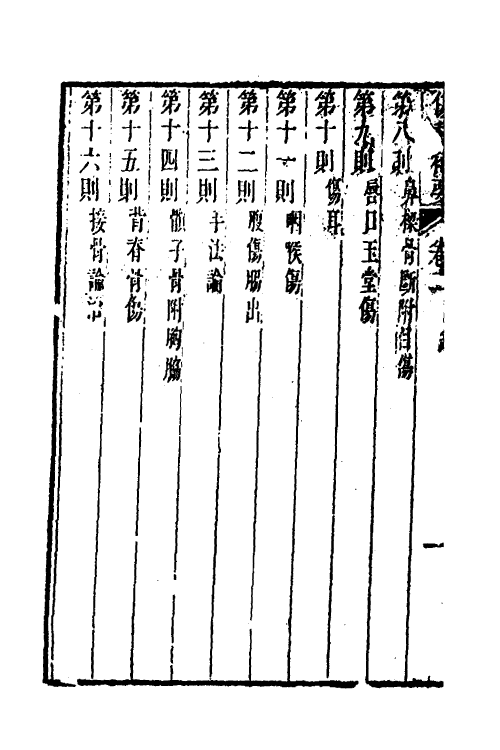 第八則 鼻樑骨斷附目傷
第九則 唇口玉堂傷
第十則 傷耳
第十一則 咽喉傷
第十二則 腹傷腸出
第十三則 手法論
第十四則 骱子骨附胸脇
第十五則 背脊骨傷
第十六則 接骨論
卷
一